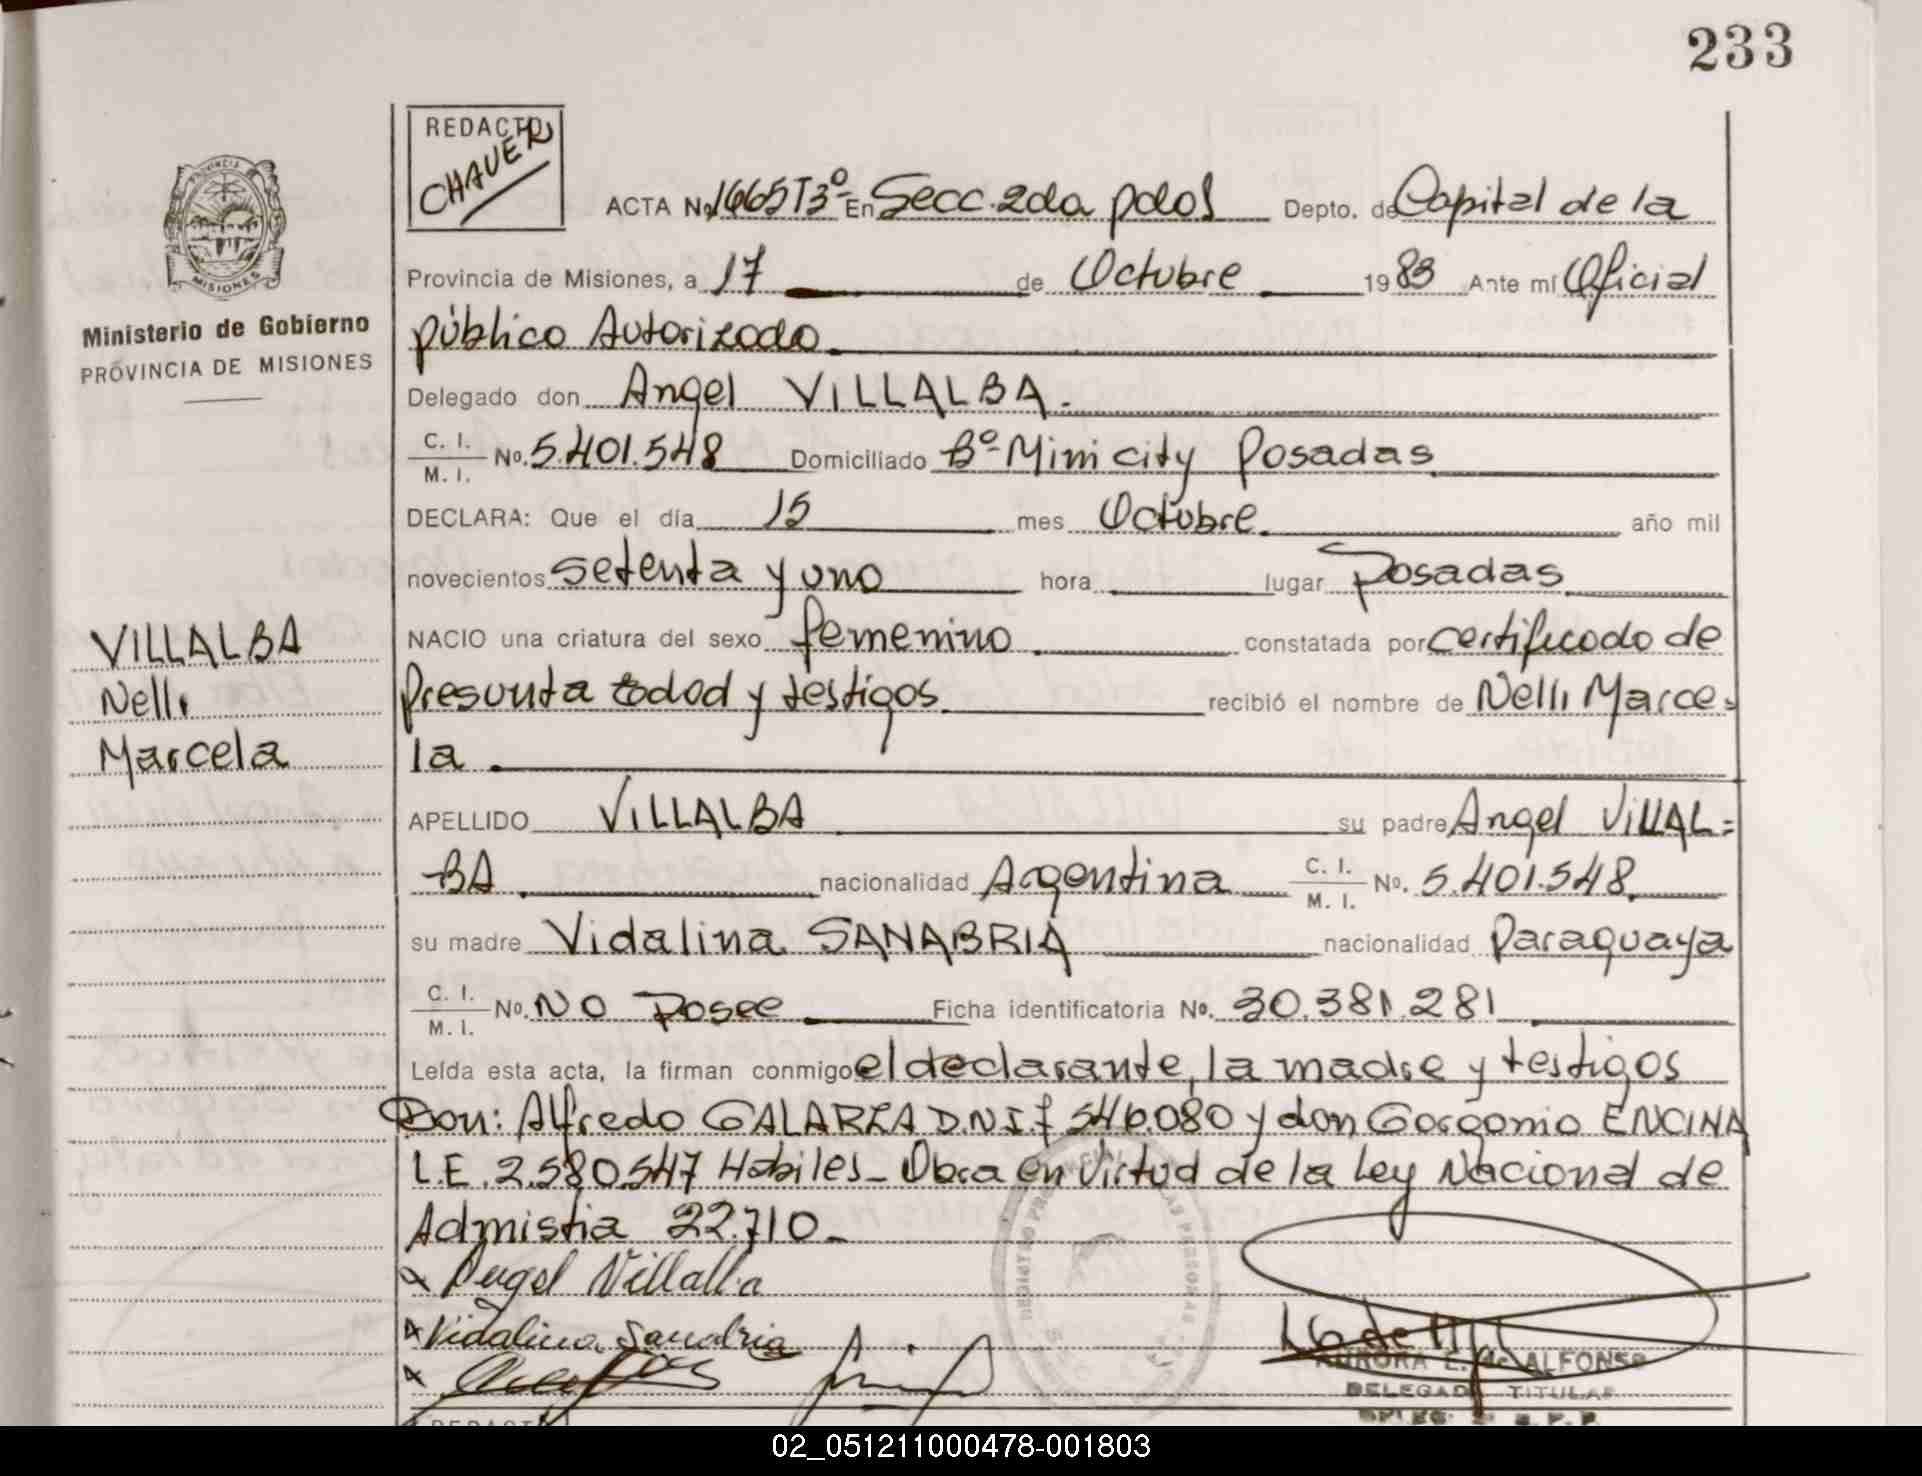 233
REDACTO
CHAVER
ACTA No 1665 T3º- En Secc. 2da pdas Depto. de Capital de la
Provincia de Misiones, a 17 de Octubre 1983 Ante mí Oficial
público Autorizado
Delegado don Angel VILLALBA.
C. I.
M. I.
No. 5.401.548 Domiciliado Bº- Mini city Posadas
DECLARA: Que el día 15 mes Octubre año mil
novecientos setenta y uno hora lugar Posadas
NACIO una criatura del sexo femenino constatada por certificado de
Presunta edad y testigos recibió el nombre de Nelli Marce-
la
APELLIDO VILLALBA su padre Angel VILLAL=
BA nacionalidad Argentina C. I. M. I. No. 5.401.548
su madre Vidalina SANABRIA nacionalidad Paraguaya
C. I. M. I. No. NO Posee Ficha identificatoria No. 30.381.281
Leída esta acta, la firman conmigo el declarante, la madre y testigos
Don: Alfredo GALARZA D.N.I. 7.546.080 y don Gorgonio ENCINA
L.E. 2.580.547 Habiles- Obra en Virtud de la Ley Nacional de
Admistia 22.710-
Angel Villalba
Vidalina Sanabria
AURORA E. de ALFONSO
DELEGADA TITULAR
MISIONES
Ministerio de Gobierno
PROVINCIA DE MISIONES
VILLALBA
Nelli
Marcela
REDACTO
02_051211000478-001803